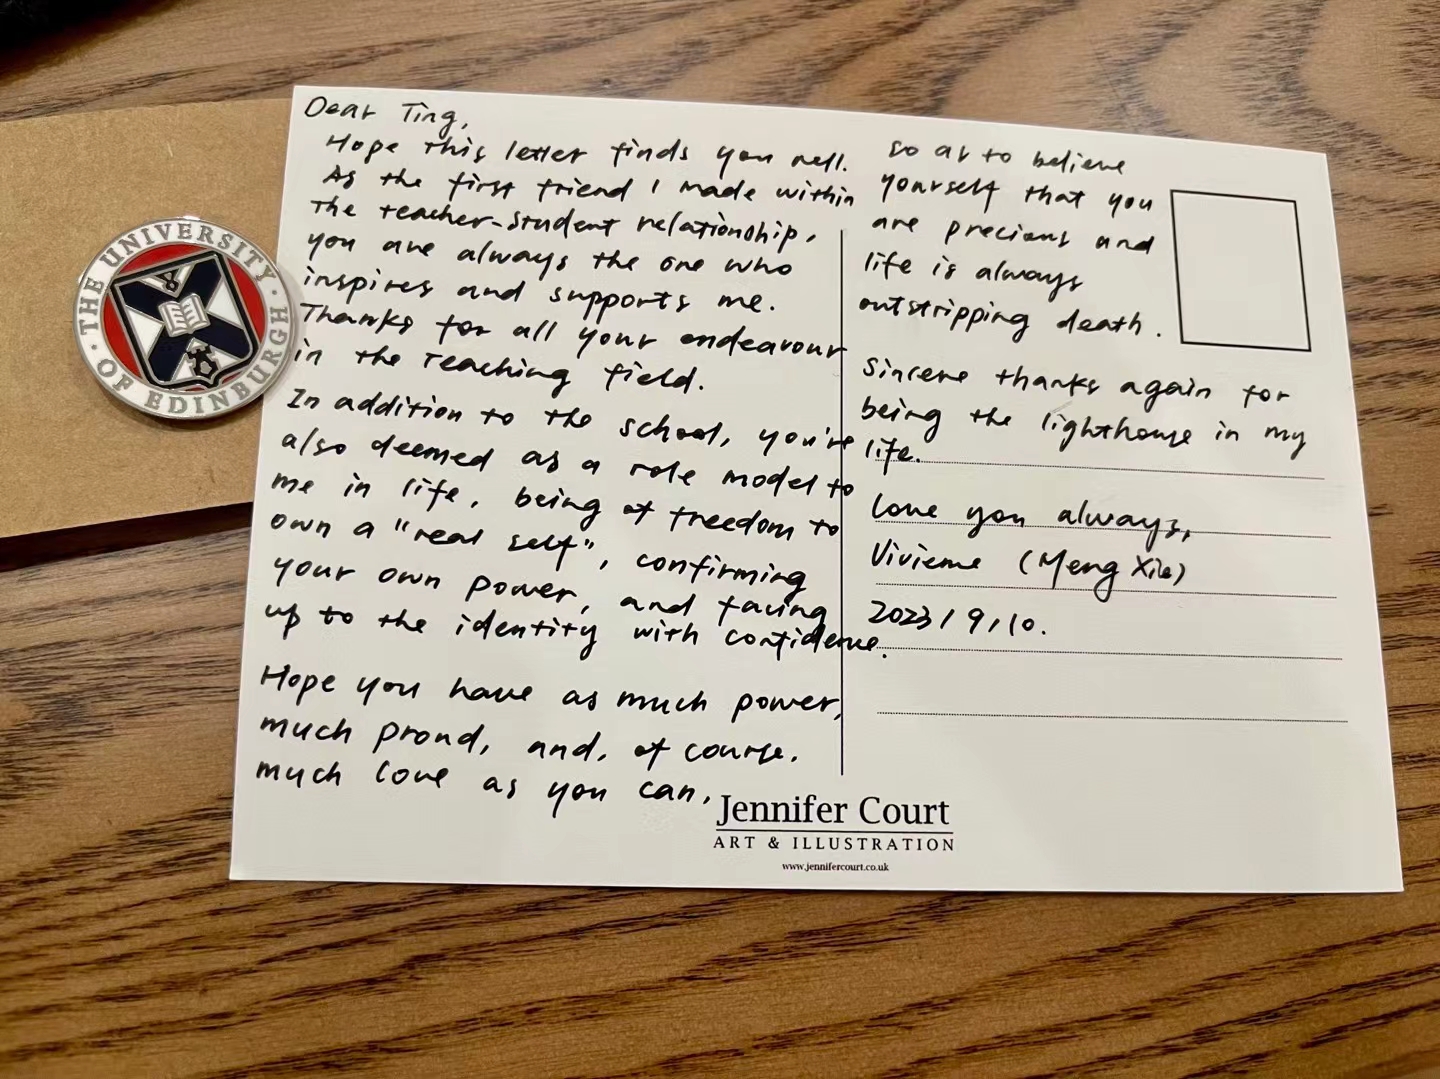 THE UNIVERSITY · OF EDINBURGH ·
Dear Ting,
Hope this letter finds you well.
As the first friend I made within
the teacher-student relationship,
you are always the one who
inspires and supports me.
Thanks for all your endeavour
in the teaching field.
In addition to the school, you're
also deemed as a role model to
me in life, being of freedom to
own a "real self", confirming
your own power, and facing
up to the identity with confidence.
Hope you have as much power,
much proud, and, of course.
much love as you can,
so as to believe
yourself that you
are precious and
life is always
outstripping death.
Sincere thanks again for
being the lighthouse in my
life.
Love you always,
Vivienne (Meng Xie)
2023/9/10.
Jennifer Court
ART & ILLUSTRATION
www.jennifercourt.co.uk